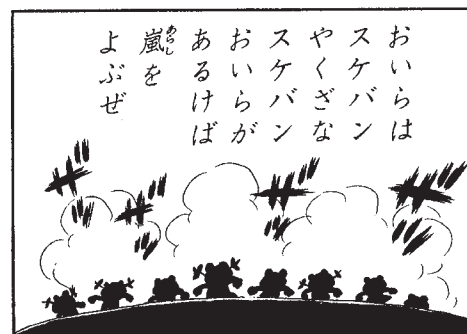 おいらは
スケバン
やくざな
スケバン
おいらが
あるけば
嵐を
よぶぜ